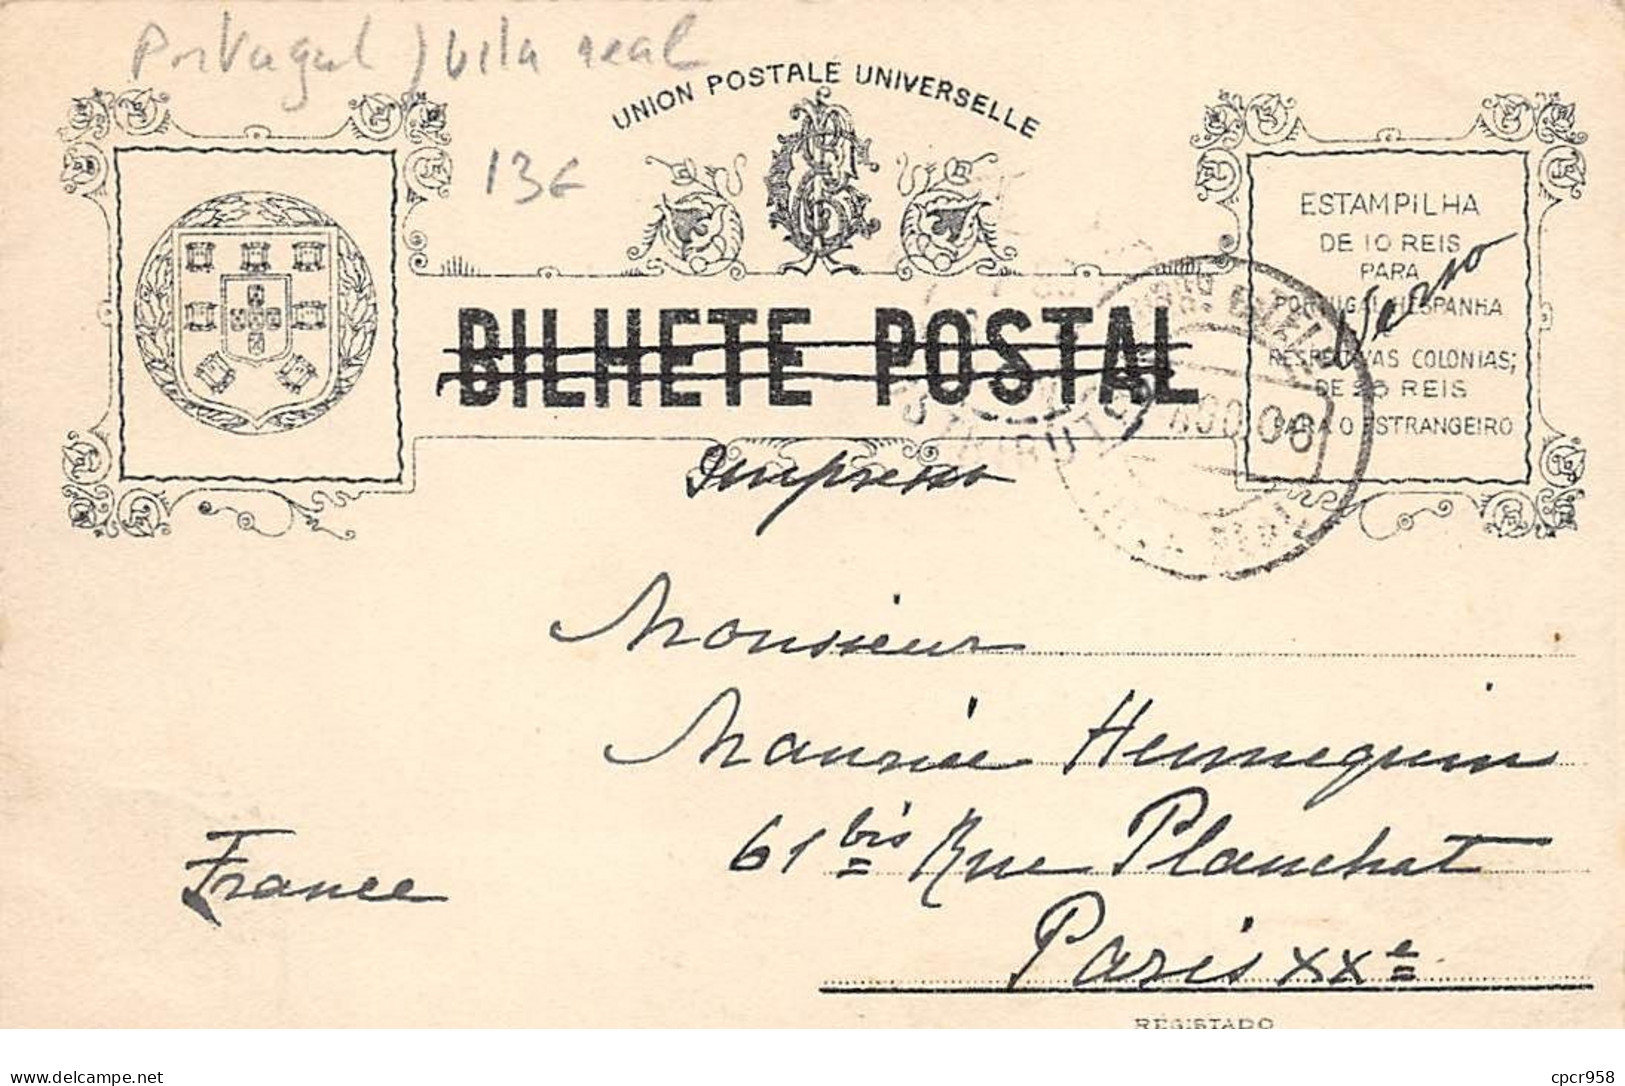 Portugal / vila real
UNION POSTALE UNIVERSELLE
13€
ESTAMPILHA
DE 10 REIS
PARA
PORTUGAL, HESPANHA
E
RESPECTIVAS COLONIAS;
DE 25 REIS
PARA O ESTRANGEIRO
Verso
BILHETE POSTAL
AGO 06
Impresso
Monsieur
Maurice Hennequin
61 bis Rue Planchat
France
Paris XXe
REGISTADO
cpcr958